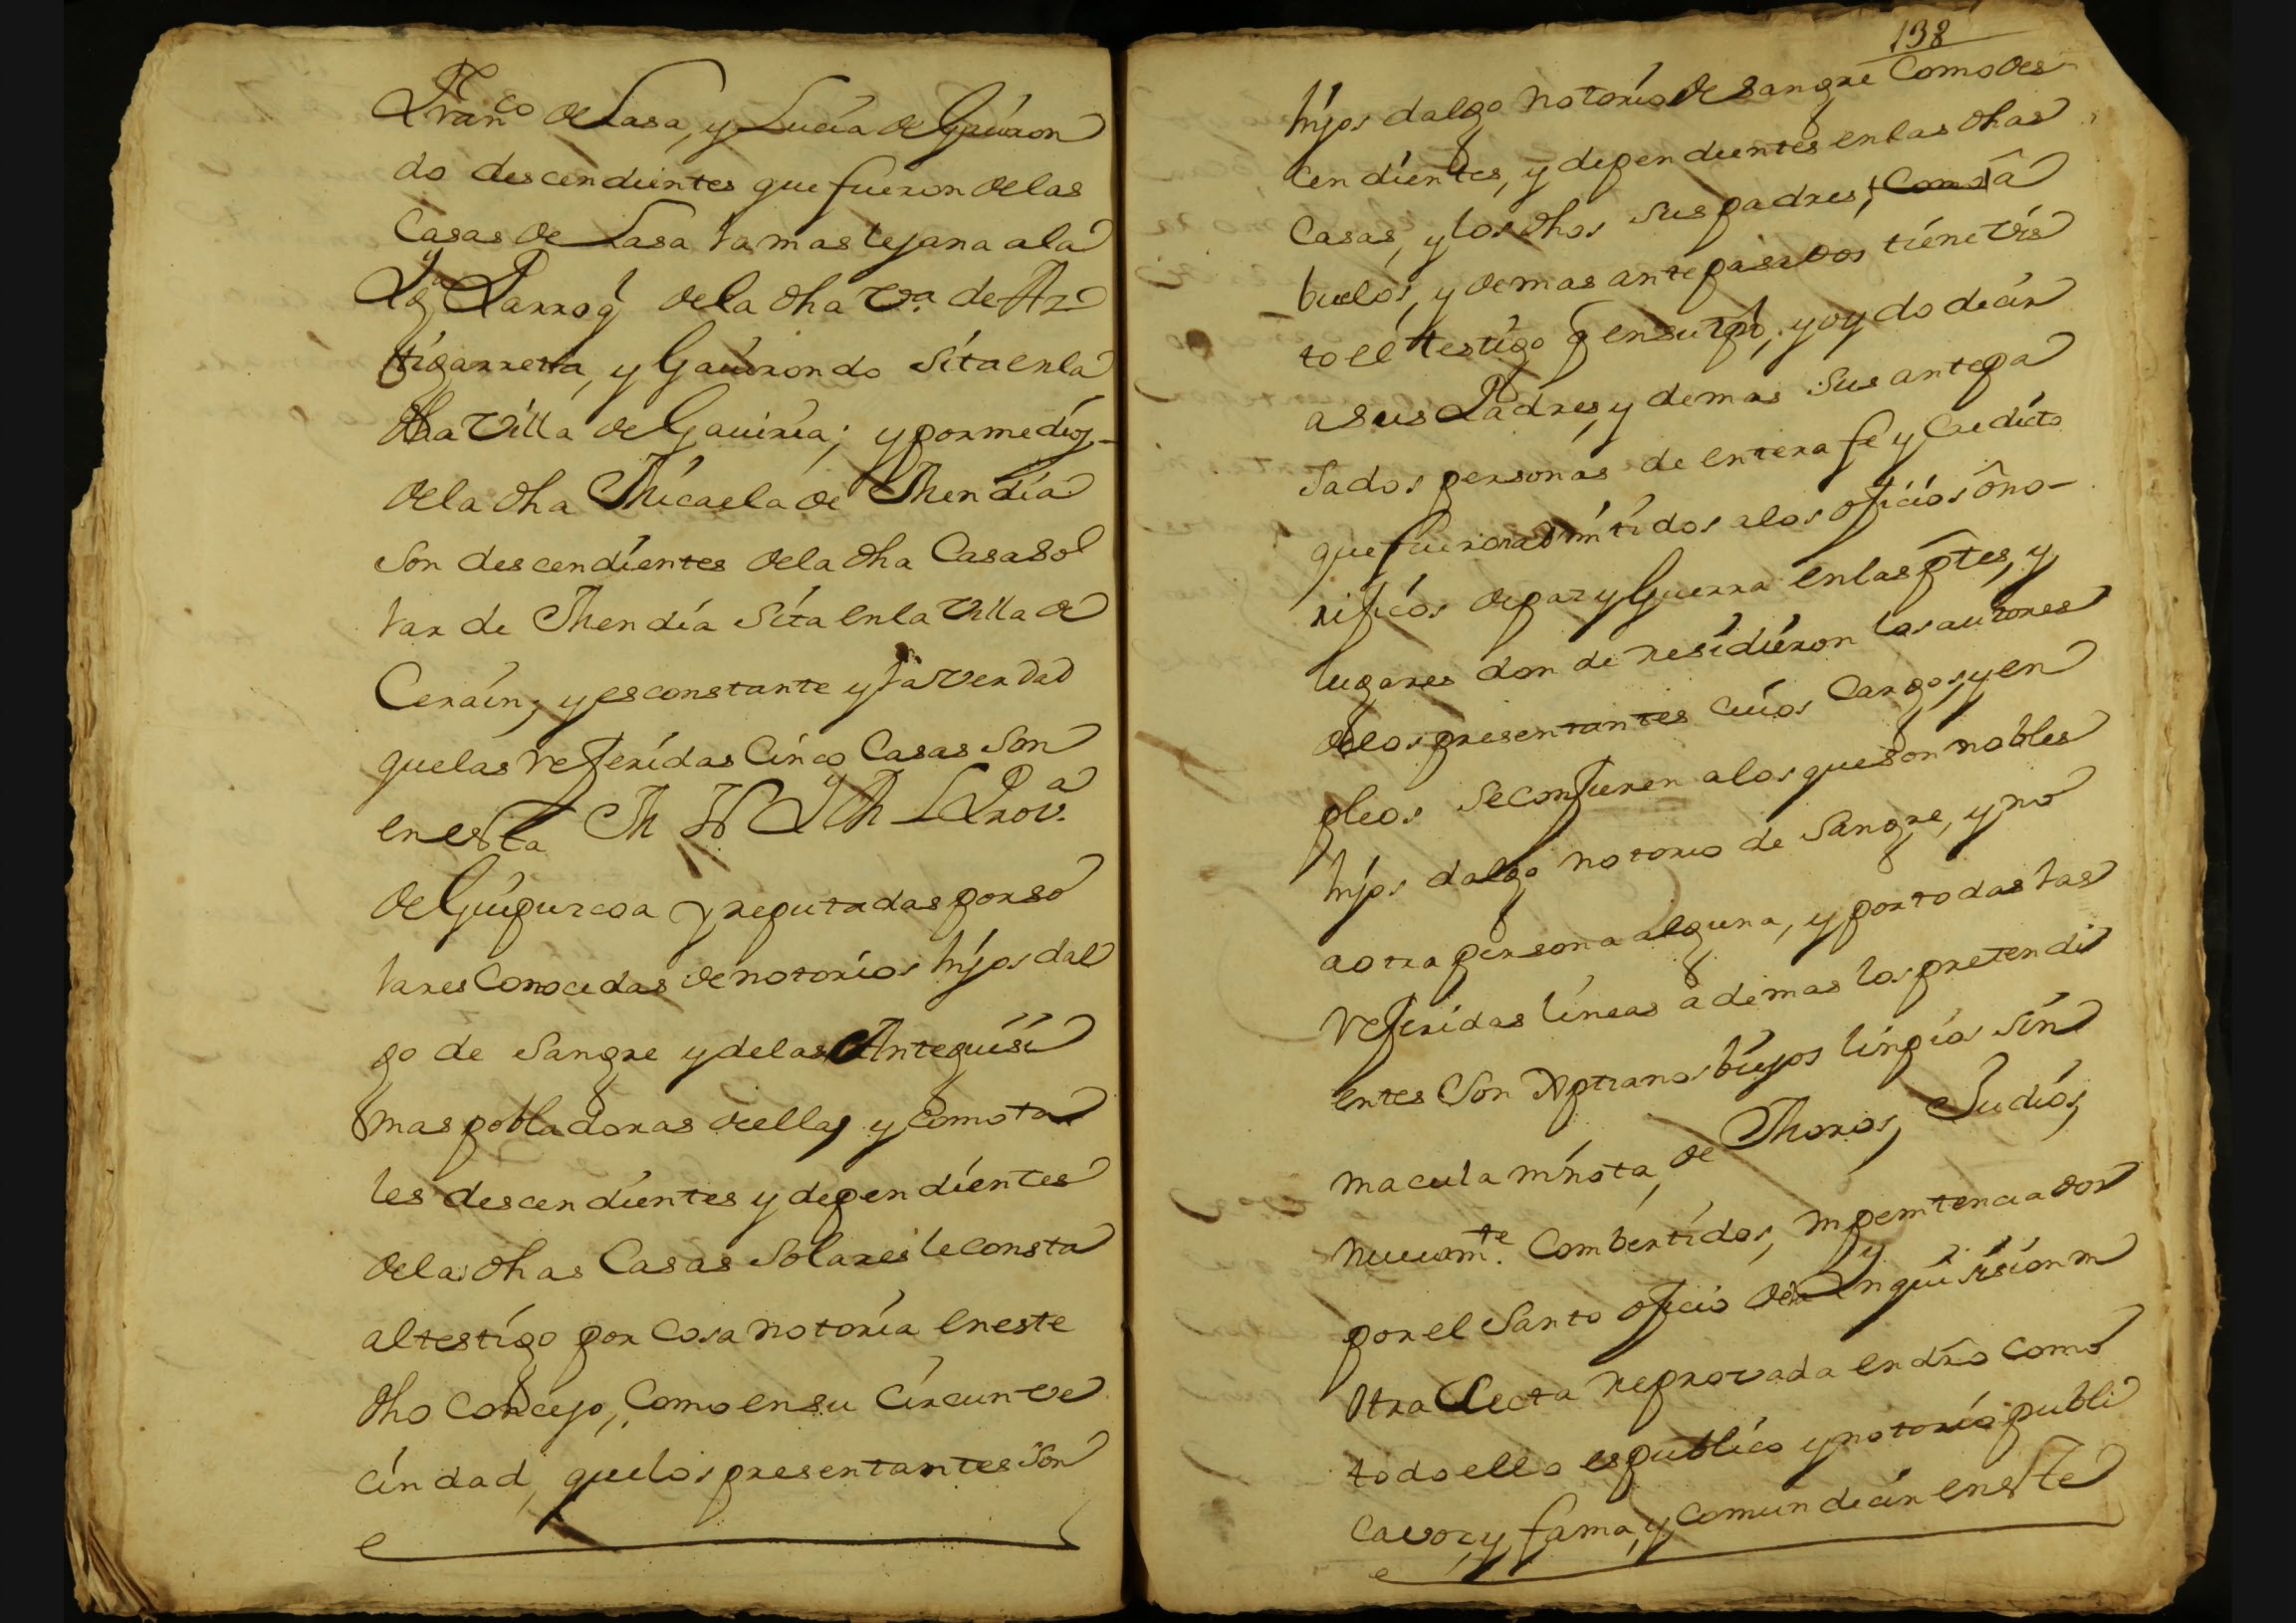 Fran.co de Lasa, y Lucia de Gauiron
do descendientes que fueron de las
Casas de Lasa la mas lejana a la
Yg.a Parroq.l de la dha V.a de Az
tigarreta, y Gauirondo sita en la
dha Villa de Gauiria; y por medio
de la dha Micaela de Mendia
son descendientes de la dha Casa Sol
lar de Mendia sita en la Villa de
Cerain; y es constante y la verdad
que las referidas Cinco Casas son
en esta M N y M L Prov.a
de Guipuzcoa y reputadas por so
lares Conocidas de notorios hijos dal
go de Sangre y de las Antequisi
mas pobladoras de ella, y como ta
les descendientes y dependientes
de las dhas Casas Solares le consta
al testigo por cosa notoria en este
dho Concejo, como en su Circunve
cindad, que los presentantes son
138
hijos dalgo notorios de sangre Como des
cendientes, y dependientes en las dhas
Casas, y los dhos sus padres, Como a
buelos, y demas antepasados tiene vis
to el testigo q en su tpo, y oydo decir
a sus Padres, y demas sus antepa
sados personas de entera fe y Credicto
que fueron admitidos a los oficios ôno
rificos de paz y Guerra en las ptes, y
lugares donde residieron los autores
de los presentantes cuios Cargos, y en
pleos se confieren a los que son nobles
hijos dalgo notorio de Sangre, y no
a otra persona alguna, y por todas las
referidas lineas ademas los pretendi
entes Son Xptianos biejos linpios sin
macula ni nota, de Moros, Judios,
nueuam.te Combertidos, ni penitenciados
por el Santo oficio de la Ynquisicion ni
otra Secta reprovada en dro como
todo ello es publico y notorio publi
ca voz, y fama, y comun decir en este